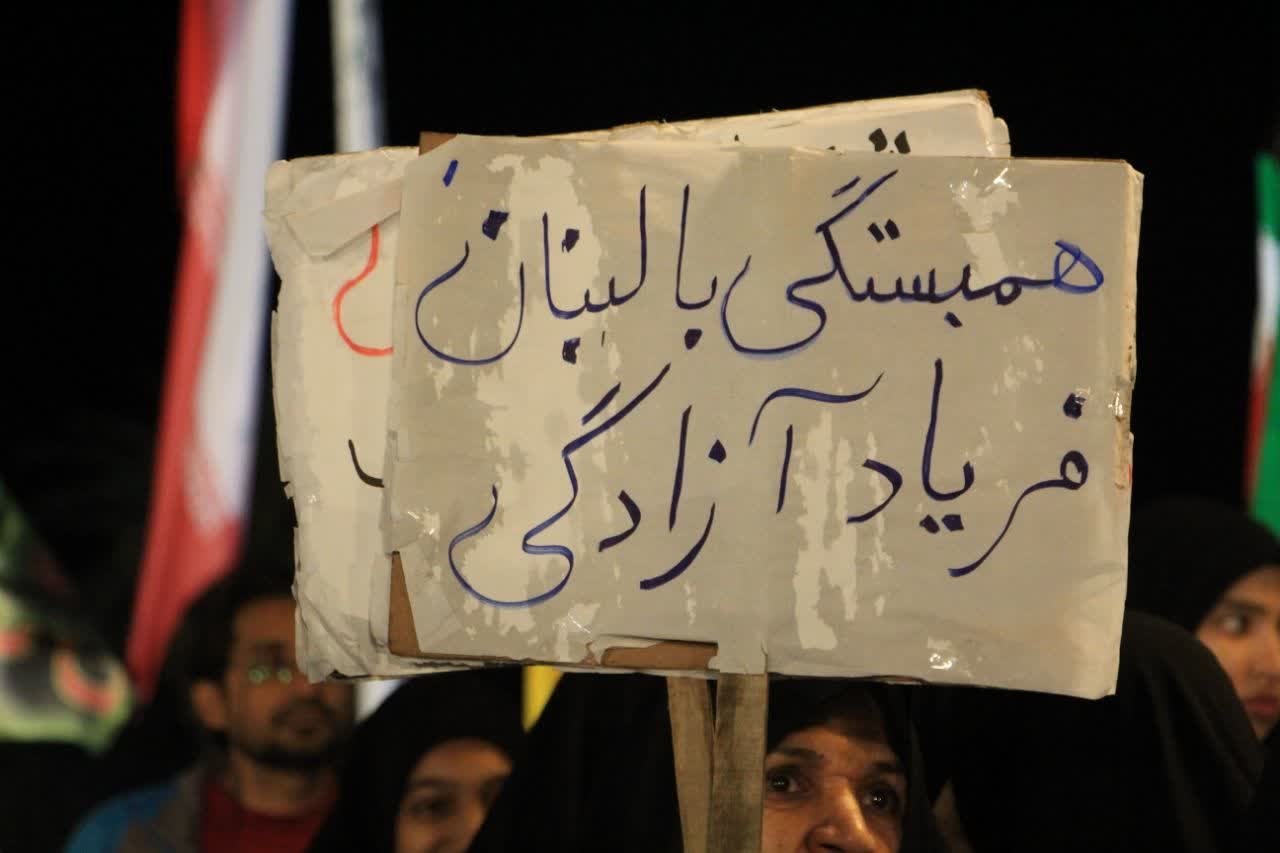 همبستگی با لبنان،
فریاد آزادگی